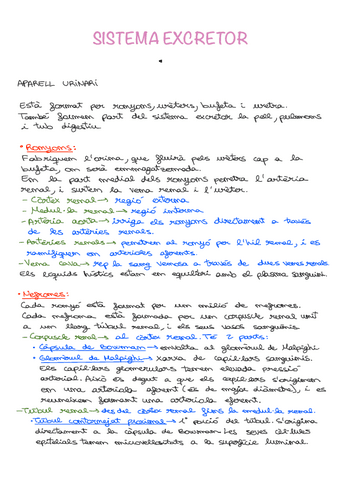 SISTEMA EXCRETOR
APARELL URINARI
Està format per ronyons, urèters, bufeta i uretra.
També formen part del sistema excretor la pell, pulmons
i tub digestiu
• Ronyons:
Fabriquen l'orina, que fluirà pels urèters cap a la
bufeta, on serà emmagatzemada.
En la part medial dels ronyons penetra l'artèria
renal, i surten la vena renal i l'urèter.
- Còrtex renal → regió externa
- Medul·la renal → regió interna
- Artèria aorta → irriga els ronyons directament a través
de les artèries renals.
- Artèries renals → penetren al ronyó per l'hil renal, i es
ramifiquen en artèrioles aferents.
- Vena cava → rep la sang venosa a través de dues venes renals
Els líquids hístics estan en equilibri amb el plasma sanguini.
• Nefrones:
Cada ronyó està format per un milió de nefrones.
Cada nefrona està formada per un corpuscle renal unit
a un llarg túbul renal, i els seus vasos sanguinis.
- Corpuscle renal → al còrtex renal. Té 2 parts:
• Càpsula de Bowman → envolta al glomèrul de Malpighi
• Glomèrul de Malpighi → xarxa de capil·lars sanguinis.
Els capil·lars glomerulars tenen elevada pressió
arterial. Això es degut a que els capil·lars s'originen
en una artèriola aferent (es de major diàmetre), i es
reuneixen formant una artèriola eferent.
- Túbul renal → des del còrtex renal fins la medul·la renal.
• Túbul contornejat proximal → 1ª porció del túbul. S'origina
directament a la càpsula de Bowman. Les seves cèl·lules
epitelials tenen microvellositats a la superfície luminal